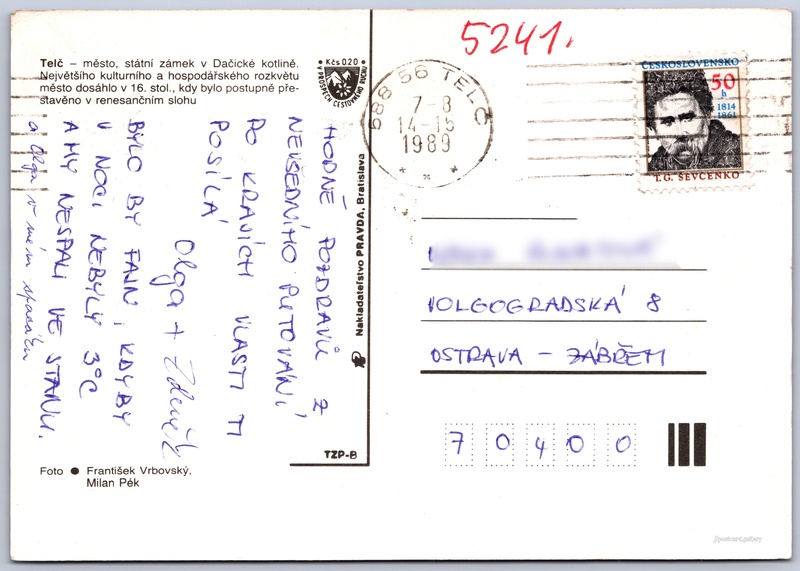 Telč – město, státní zámek v Dačické kotlině.
Největšího kulturního a hospodářského rozkvětu
město dosáhlo v 16. stol., kdy bylo postupně pře-
stavěno v renesančním slohu
Kčs 0,20
V PROSPĚCH CESTOVNÍHO RUCHU
5241.
588 56 TELČ
7-8
14-15
1989
ČESKOSLOVENSKO
50
h
1814
1861
T.G. ŠEVČENKO
HODNĚ POZDRAVŮ Z
NEVŠEDNÍHO PUTOVÁNÍ
PO KRAJÍCH VLASTI TI
POSÍLÁ
Olga + Zdeněk
BYLO BY FAJN, KDYBY
V NOCI NEBYLY 3°C
A MY NESPALI VE STANU.
a Olga v mém spacáku
Nakladatelství PRAVDA, Bratislava
TZP-B
VOLGOGRADSKÁ 8
OSTRAVA – ZÁBŘEH
70400
Foto ● František Vrbovský,
Milan Pék
//postcard.gallery